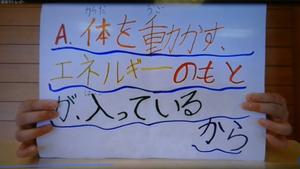 からだ うご
A. 体を動かす、
エネルギーのもと
が、入っている
はい
から